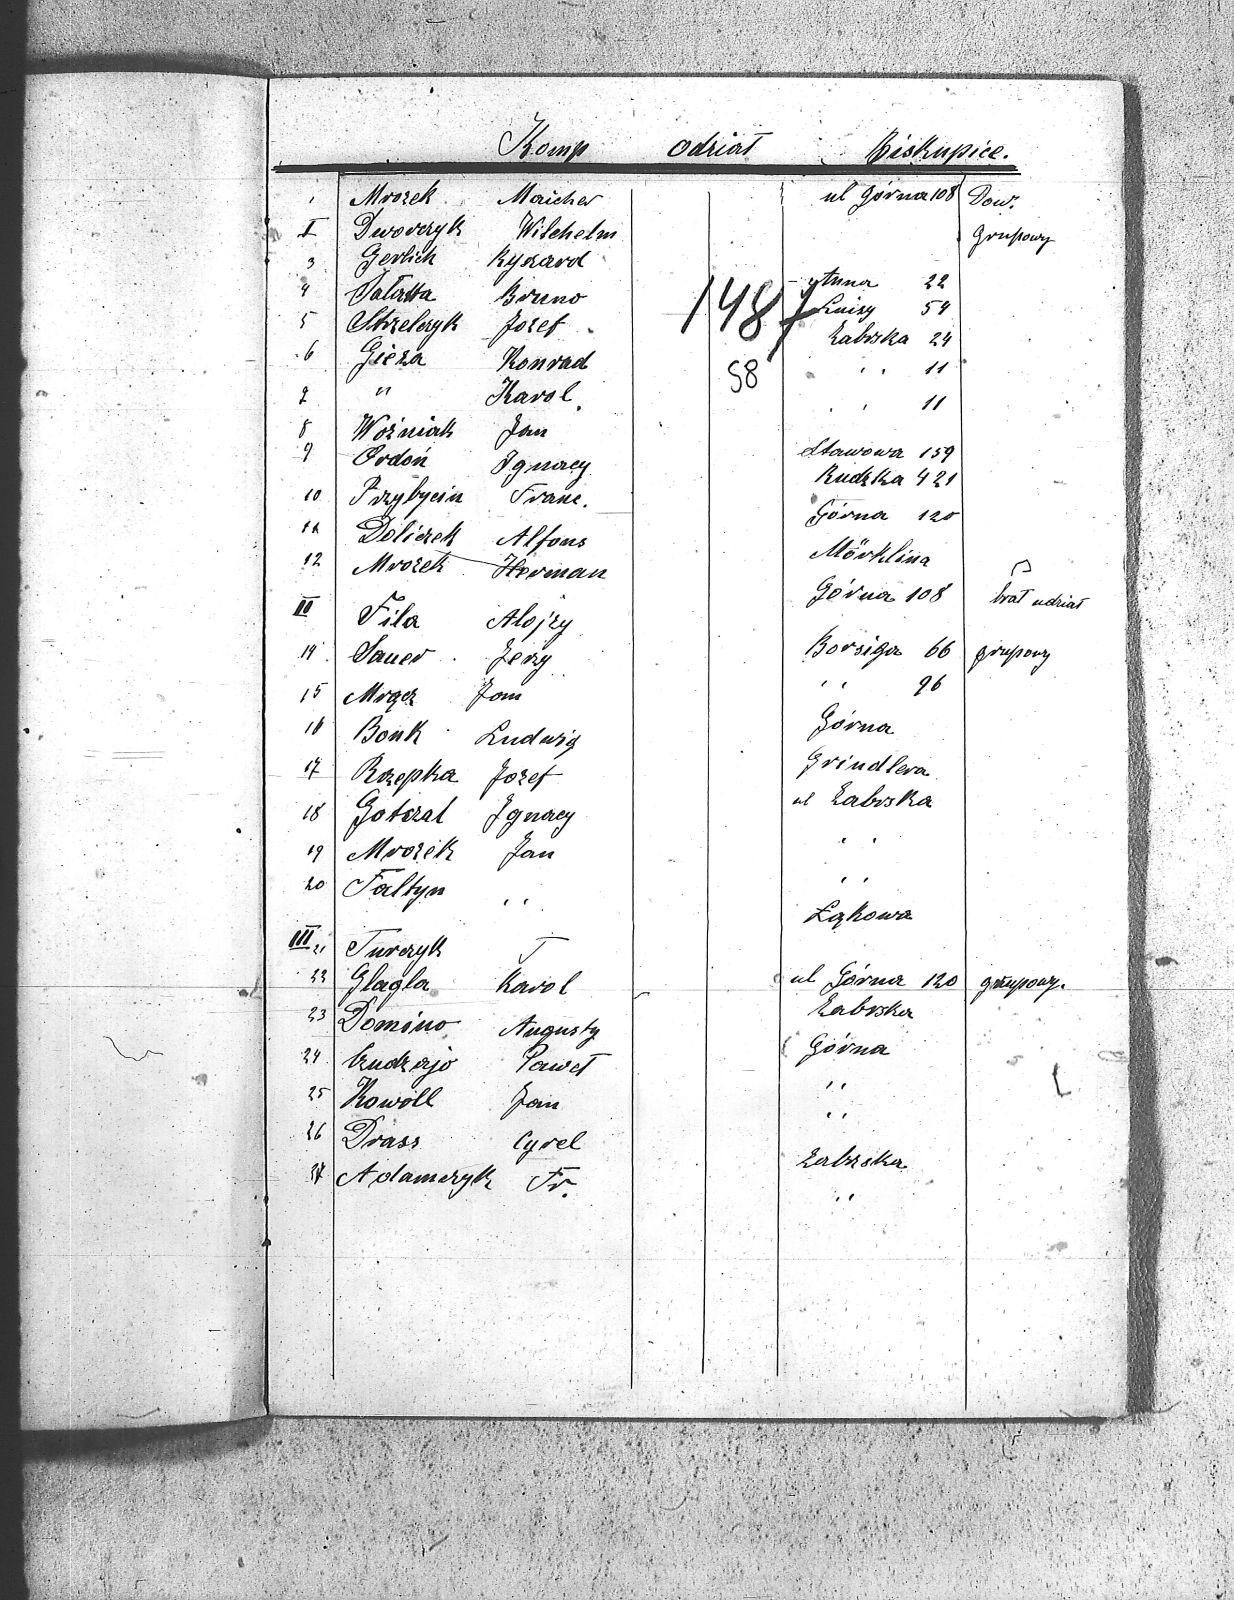 Komp odział Biskupice.
1 Mrozek Maicher ul Górna 108 Dow.
I Dworczyk Wilchelm grupowy
3 Gerlich Ryszard
4 Sałatta Bruno Anna 22
5 Strzelczyk Jozef Luizy 54
6 Gieza Konrad Zabrska 24
7 " Karol " 11
8 Woźniak Jan " 11
9 Ordoń Ignacy Stawowa 159
10 Przybycin Franc. Rudzka 421
11 Doliczek Alfons Górna 120
12 Mrozek Herman Mörklina
II Fila Alojzy Górna 108 brał udział
14 Sauer Jerzy Borsiga 66 grupowy
15 Mrącz Jan " 96
16 Bonk Ludwig Górna
17 Rzepka Jozef Grindlera
18 Gotczal Ignacy ul Zabrska
19 Mrozek Jan "
20 Faltyn " "
Łąkowa
III 21 Turczyk J
22 Glagla Karol ul Górna 120 grupowy.
23 Domino Augusty Zabrska
24 Czudzajo Paweł Górna
25 Kowoll Jan "
26 Drass Cyrel "
27 Adamczyk Fr. Zabrska
"
1487
58